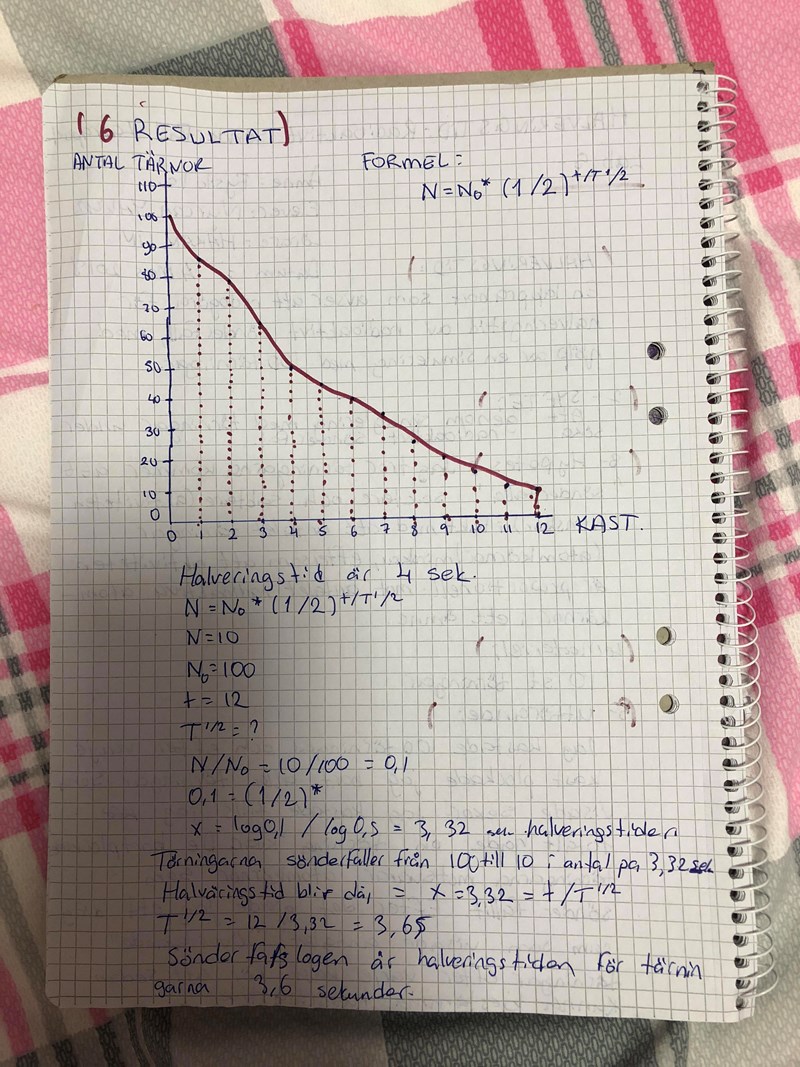 (6 RESULTAT)
ANTAL TÄRNOR
FORMEL:
N=N₀* (1/2)^t/T1/2
110
100
90
80
70
60
50
40
30
20
10
0
0 1 2 3 4 5 6 7 8 9 10 11 12 KAST.
Halveringstid är 4 sek.
N=N₀*(1/2)^t/T1/2
N=10
N₀=100
t=12
T1/2=?
N/N₀=10/100=0,1
0,1=(1/2)^x
x=log0,1/log0,5=3,32 halveringstider.
Tärningarna sönderfaller från 100 till 10 i antal på 3,32 sek
Halväringstid blir då, = x=3,32=t/T1/2
T1/2=12/3,32=3,6s
Sönderfafslogen är halveringstiden för tärnin
garna 3,6 sekunder.